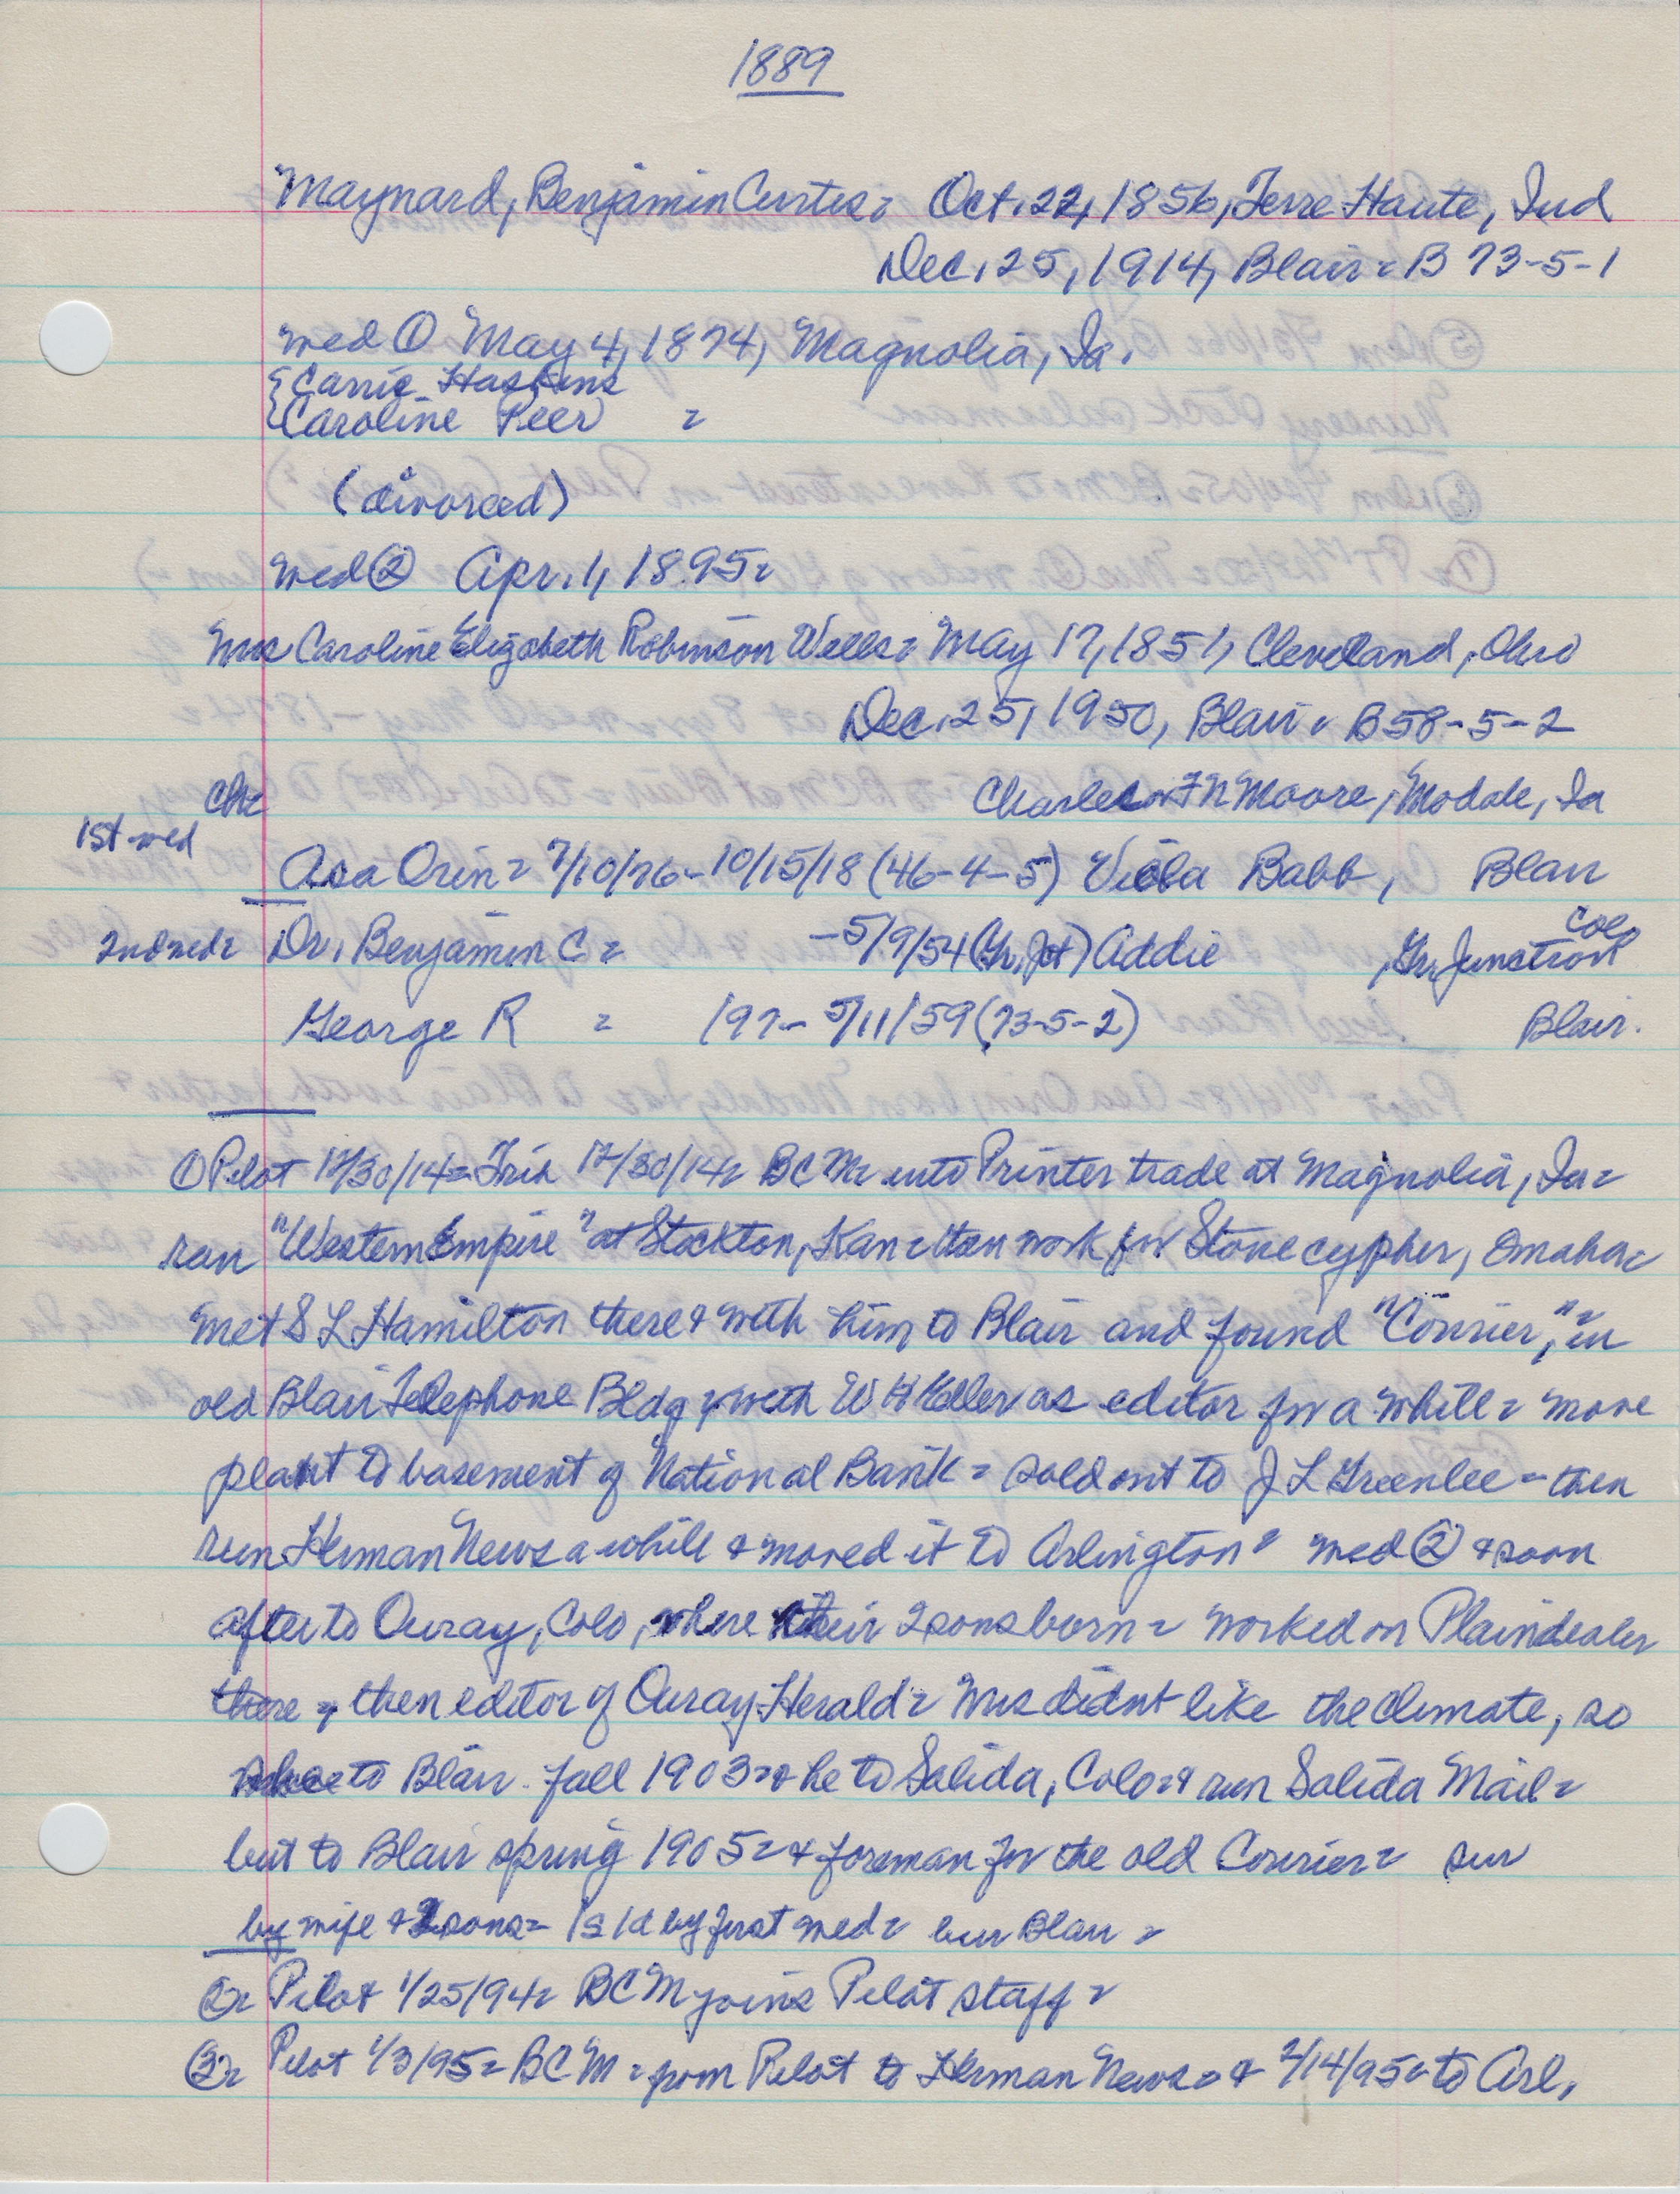 1889
Maynard, Benjamin Curtis= Oct. 22, 1856, Terre Haute, Ind
Dec. 25, 1914, Blair= B 73-5-1
wed ① May 4, 1874, Magnolia, Ia.
{Carrie Haskins
{Caroline Peer =
(divorced)
wed ② Apr. 1, 1895=
Mrs Caroline Elizabeth Robinson Wells= May 17, 1851, Cleveland, Ohio
Dec. 25, 1950, Blair= B 58-5-2
Ch= Charles or F N Moore, Modale, Ia
1st wed
Asa Orin= 7/10/76-10/15/18 (46-4-5) Viola Babb, Blair
2nd wed= Dr. Benjamin C= -5/9/54 (Gr. Jct) Addie , Gr. Junction Colo
George R = 197- 5/11/59 (73-5-2) Blair.
① Pilot 12/30/14= Trib 12/30/14= BCM= into Printer trade at Magnolia, Ia=
ran "Western Empire" at Stockton, Kan= then work for Stonecypher, Omaha=
met S L Hamilton there & with him to Blair and found "Courier," = in
old Blair Telephone Bldg & with W H Eller as editor for a while= move
plant to basement of National Bank= sold out to J L Greenlee - then
run Herman News a while & moved it to Arlington= wed ② & soon
after to Ouray, Colo, where their 2 sons born= worked on Plaindealer
there & then editor of Ouray Herald= Mrs didnt like the climate, so
to Blair fall 1903= & he to Salida, Colo= & run Salida Mail=
but to Blair spring 1905= & foreman for the old Courier= sur
by wife & 2 sons= 1s 1d by first wed= bur Blair =
②= Pilot 1/25/94= BCM joins Pilot staff=
③= Pilot 1/3/95= BCM= from Pilot to Herman News= & 2/14/95= to Arl.